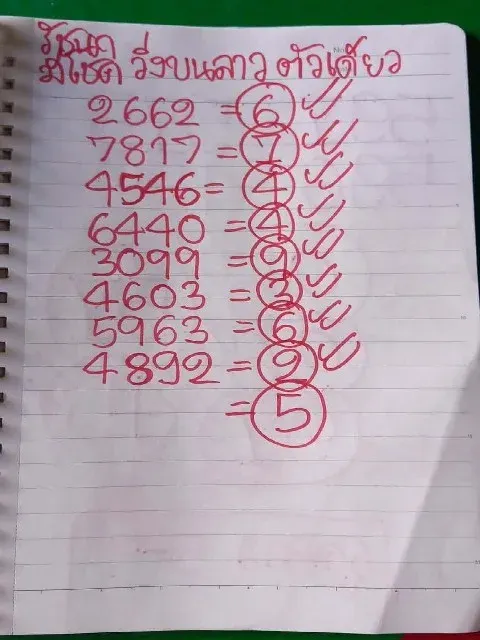 รัชนก
มีโชค วิ่งบนลาว ตัวเดียว
2662 = 6
7817 = 7
4546 = 4
6440 = 4
3099 = 9
4603 = 3
5963 = 6
4892 = 2
= 5